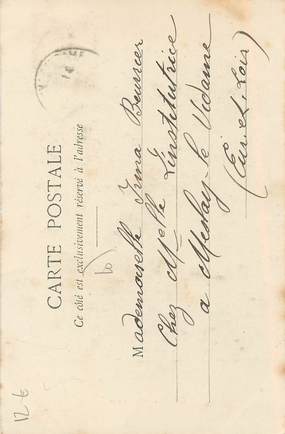 CARTE POSTALE
Ce côté est exclusivement réservé à l'adresse
Mademoiselle Irma Beussier
Chez Melle L'institutrice
a Meslay-le-Vidame
(Eure-et-Loir)
12 €